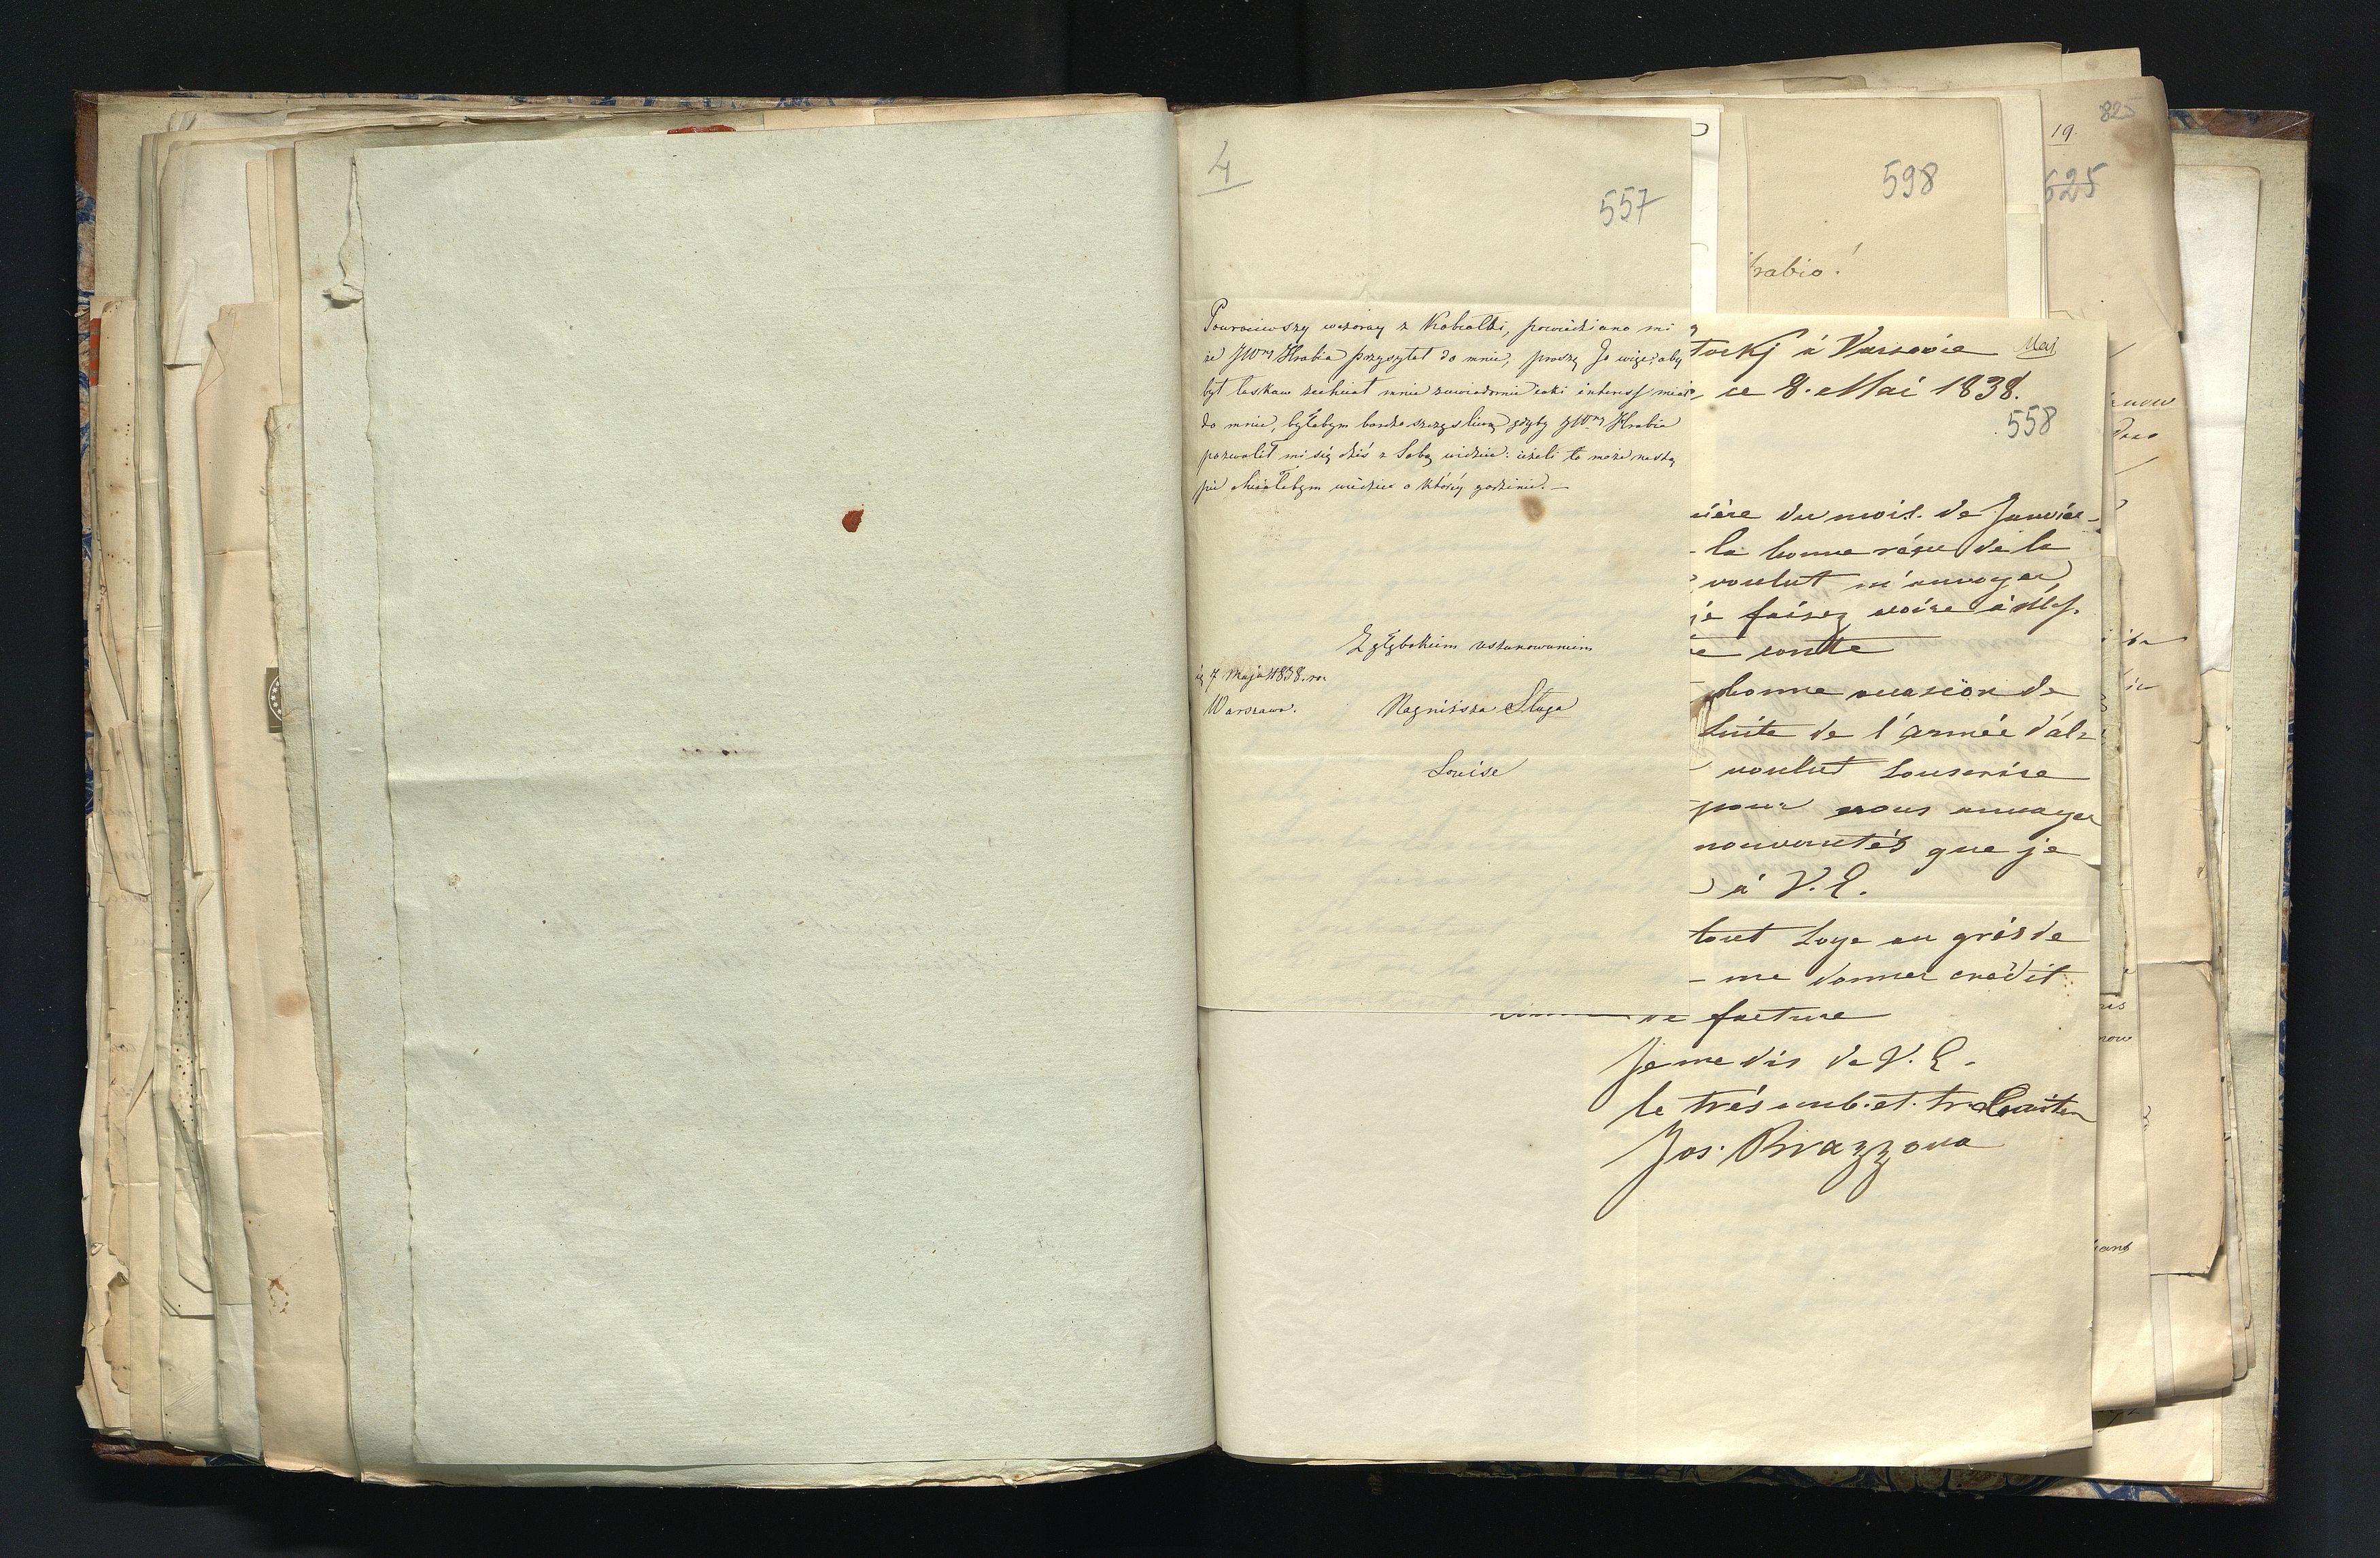 4
557
Powróciwszy wczoray z Kobiałki, powiedziano mi
że JWny Hrabia przysyłał do mnie, proszę Jo więc, aby
był łaskaw zechciał mnie zawiadomić iaki interess miał
do mnie, byłabym bardzo szczęśliwą gdyby JWny Hrabia
pozwolił mi się dziś z Sobą widzieć: ieżeli to może nastą
pić chciałabym wiedzieć o któréy godzinie. —
Z głębokiem uszanowaniem
7 Maja 1838. ro
Warszawa.
Nagniższa Sługa
Louise
598
hrabio!
19.
825
625
tockj à Varsovie
Maj
ce 8. Mai 1838.
558
nière du mois. de Janvier
la bonne réçue de la
voulut m'envoyer
je faisez
le conte
bonne occasion de
Suite de l'armée d'al
voulut Souscrire
pour vous envoyer
nouveautés que je
à V. E.
tout Soye au grés de
me donner crédit
de facture
Je me dis de V. E.
le trés umb. et. tr.
Jos. Brazzova